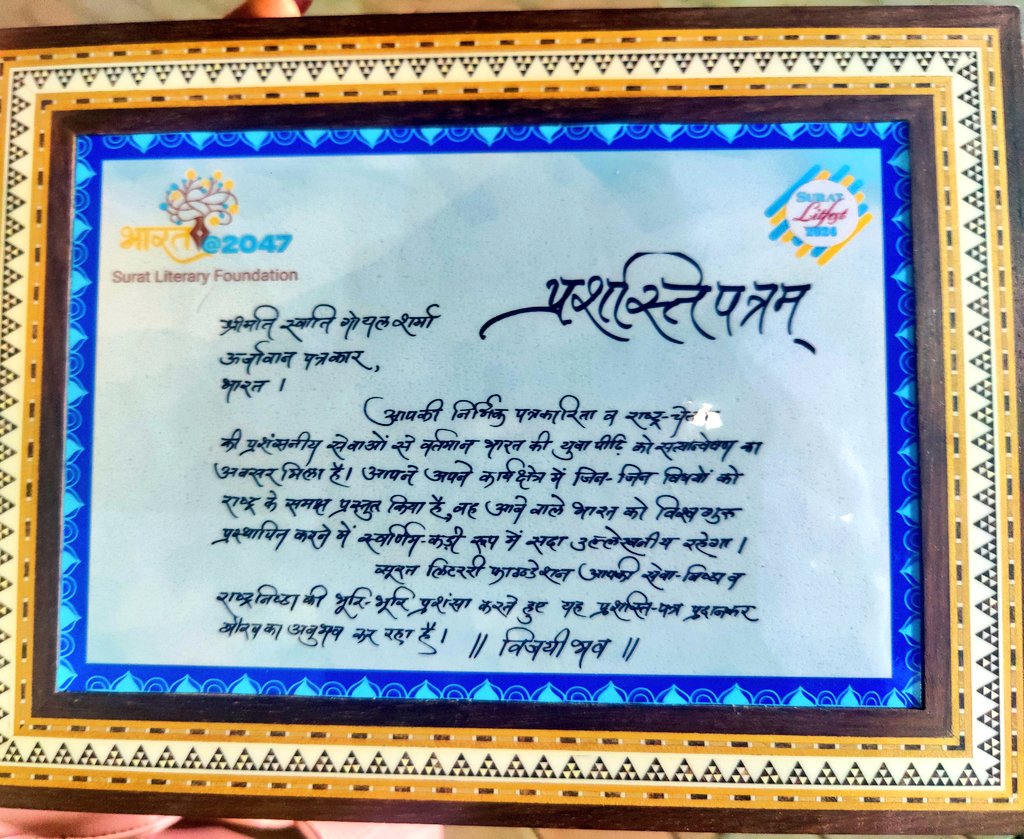 भारत@2047
Surat Literary Foundation
SURAT
Litfest
2024
प्रशस्तिपत्रम्
श्रीमति स्वाति गोयल शर्मा
ऊर्जावान पत्रकार,
भारत ।
आपकी निर्भिक पत्रकारिता व राष्ट्र-चेतना
की प्रशंसनीय सेवाओं से वर्तमान भारत की युवा पीढि को सत्यान्वेषण का
अवसर मिला है। आपने अपने कार्यक्षेत्र में जिन-जिन विषयों को
राष्ट्र के समक्ष प्रस्तुत किया है, वह आने वाले भारत को विश्वगुरु
प्रस्थापित करने में स्वर्णिम-कड़ी रूप में सदा उल्लेखनीय रहेगा।
सूरत लिटररी फाउण्डेशन आपकी सेवा-निष्ठा व
राष्ट्रनिष्ठा की भूरि-भूरि प्रशंसा करते हुए यह प्रशस्ति-पत्र प्रदानकर
गौरव का अनुभव कर रहा है। ॥ विजयी भव ॥